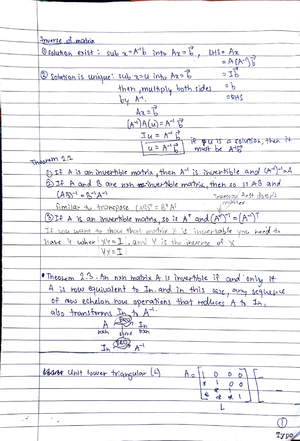 Inverse of matrix
① Solution exist : sub x = A⁻¹b into Ax = b , LHS = Ax
= A(A⁻¹)b
② Solution is unique : sub x=u into Ax = b = Ib
then, multiply both sides = b
by A⁻¹. = RHS
Ax = b
(A⁻¹)A(u) = A⁻¹b
Iu = A⁻¹b
u = A⁻¹b if u is a solution, then it
must be A⁻¹b
Theorem 2.2
① If A is an invertible matrix, then A⁻¹ is invertible and (A⁻¹)⁻¹=A
② If A and B are nxn invertible matrix, then so is AB and
(AB)⁻¹ = B⁻¹A⁻¹
Similar to transpose (AB)ᵀ = BᵀAᵀ
③ If A is an invertible matrix, so is Aᵀ and (Aᵀ)⁻¹ = (A⁻¹)ᵀ
If you want to show that matrix X is invertible you need to
have Y where XY = I , and Y is the inverse of X
YX = I
• Theorem 2.3 An nxn matrix A is invertible if and only if
A is row equivalent to In. and in this case, any sequence
of row echelon row operations that reduces A to In,
also transforms In to A⁻¹.
A In
nxn same nxn
In A⁻¹
Unit lower triangular (L) A = 1 0 0 0
1 0 0
1 0
1
L
①